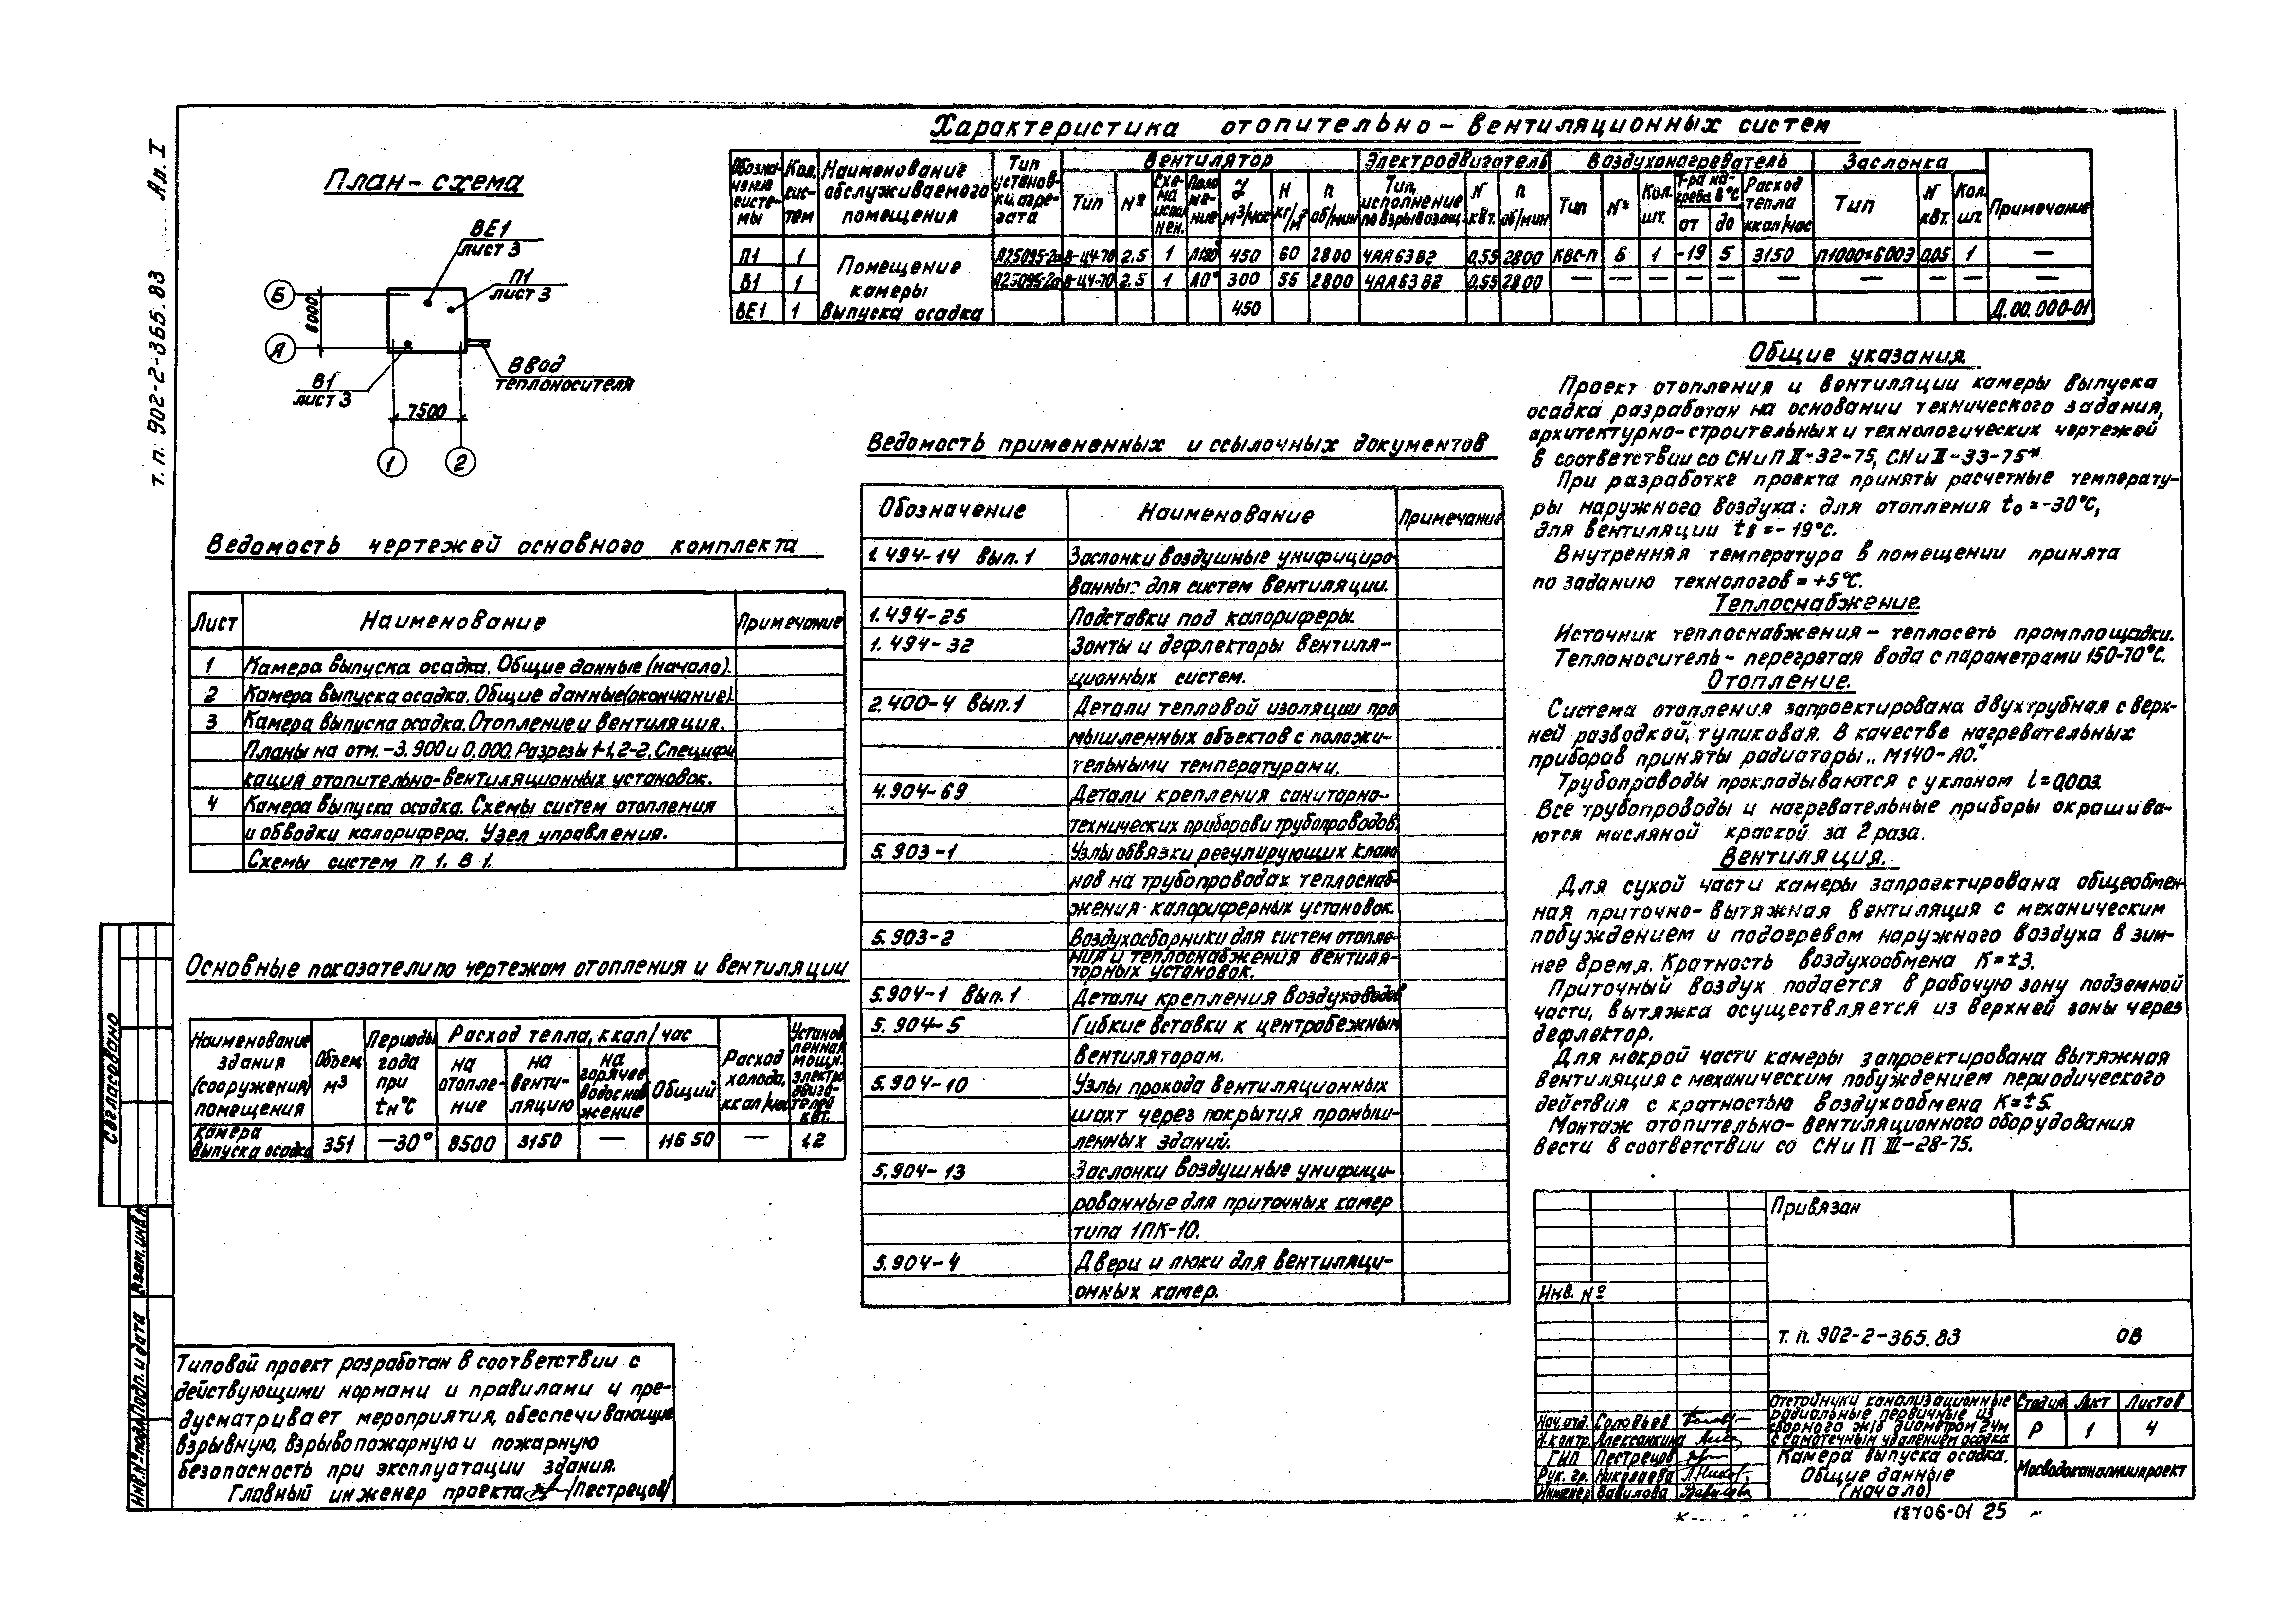 т. п. 902-2-365.83 Ал. I
План-схема
ВЕ1
лист 3
П1
лист 3
Б
6000
А
В1
лист 3
Ввод
теплоносителя
7500
1 2
Характеристика отопительно-вентиляционных систем
Обозна-чение систе-мы | Кол. сис-тем | Наименование обслуживаемого помещения | Тип установ-ки, агре-гата | Вентилятор | Электродвигатель | Воздухонагреватель | Заслонка | Примечание
Тип | № | Схе-ма испол нен. | Поло же-ние | м³/час | Н кг/м² | n об/мин | Тип, исполнение по взрывозащ. | N квт. | n об/мин | Тип | № | Кол. шт. | Т-ра на-грева в °С от до | Расход тепла ккал/час | Тип | N квт. | Кол. шт.
П1 | 1 | Помещение камеры выпуска осадка | А25095-2а | В-Ц4-70 | 2.5 | 1 | Л180° | 450 | 60 | 2800 | 4АА63В2 | 0,55 | 2800 | КВС-П | 6 | 1 | -19 | 5 | 3150 | П1000х600Э | 0,05 | 1 | —
В1 | 1 | А25095-2а | В-Ц4-70 | 2.5 | 1 | Л0° | 300 | 55 | 2800 | 4АА63В2 | 0.55 | 2800 | — | — | — | — | — | — | — | — | — | —
ВЕ1 | 1 | 450 | Д.00.000-01
Ведомость чертежей основного комплекта
Лист | Наименование | Примечание
1 | Камера выпуска осадка. Общие данные (начало).
2 | Камера выпуска осадка. Общие данные (окончание).
3 | Камера выпуска осадка. Отопление и вентиляция.
Планы на отм. -3.900 и 0.000. Разрезы 1-1, 2-2. Специфи
кация отопительно-вентиляционных установок.
4 | Камера выпуска осадка. Схемы систем отопления
и обводки калорифера. Узел управления.
Схемы систем П 1. В 1.
Основные показатели по чертежам отопления и вентиляции
Наименование здания (сооружения) помещения | Объем, м³ | Периоды года при tн°С | Расход тепла, ккал/час | Расход холода, ккал/час | Установ ленная мощн. электро двига телей квт.
на отопле-ние | на венти-ляцию | на горячее водоснаб жение | Общий
камера выпуска осадка | 351 | —30° | 8500 | 3150 | — | 11650 | — | 1.2
Типовой проект разработан в соответствии с
действующими нормами и правилами и пре-
дусматривает мероприятия, обеспечивающие
взрывную, взрывопожарную и пожарную
безопасность при эксплуатации здания.
Главный инженер проекта /Пестрецов/
Ведомость примененных и ссылочных документов
Обозначение | Наименование | Примечание
1.494-14 вып.1 | Заслонки воздушные унифициро-
ванные для систем вентиляции.
1.494-25 | Подставки под калориферы.
1.494-32 | Зонты и дефлекторы вентиля-
ционных систем.
2.400-4 Вып.1 | Детали тепловой изоляции про
мышленных объектов с положи-
тельными температурами.
4.904-69 | Детали крепления санитарно-
технических приборов и трубопроводов.
5.903-1 | Узлы обвязки регулирующих клапа
нов на трубопроводах теплоснаб-
жения калориферных установок.
5.903-2 | Воздухосборники для систем отопле-
ния и теплоснабжения вентиля-
торных установок.
5.904-1 Вып.1 | Детали крепления воздуховодов
5.904-5 | Гибкие вставки к центробежным
вентиляторам.
5.904-10 | Узлы прохода вентиляционных
шахт через покрытия промыш-
ленных зданий.
5.904-13 | Заслонки воздушные унифици-
рованные для приточных камер
типа 1ПК-10.
5.904-4 | Двери и люки для вентиляци-
онных камер.
Общие указания
Проект отопления и вентиляции камеры выпуска
осадка разработан на основании технического задания,
архитектурно-строительных и технологических чертежей
в соответствии со СНиП II-32-75, СНиII-33-75*
При разработке проекта приняты расчетные температу-
ры наружного воздуха: для отопления tо=-30°С,
для вентиляции tв=-19°С.
Внутренняя температура в помещении принята
по заданию технологов=+5°С.
Теплоснабжение.
Источник теплоснабжения - теплосеть промплощадки.
Теплоноситель - перегретая вода с параметрами 150-70°С.
Отопление.
Система отопления запроектирована двухтрубная с верх-
ней разводкой, тупиковая. В качестве нагревательных
приборов приняты радиаторы „М140-АО."
Трубопроводы прокладываются с уклоном i=0,003.
Все трубопроводы и нагревательные приборы окрашива-
ются масляной краской за 2 раза.
Вентиляция.
Для сухой части камеры запроектирована общеобмен-
ная приточно-вытяжная вентиляция с механическим
побуждением и подогревом наружного воздуха в зим-
нее время. Кратность воздухообмена К=±3.
Приточный воздух подается в рабочую зону подземной
части, вытяжка осуществляется из верхней зоны через
дефлектор.
Для мокрой части камеры запроектирована вытяжная
вентиляция с механическим побуждением периодического
действия с кратностью воздухообмена К=±5.
Монтаж отопительно-вентиляционного оборудования
вести в соответствии со СНиП III-28-75.
Привязан
Инв. №
т. п. 902-2-365.83 ОВ
Отстойники канализационные
радиальные первичные из
сборного ж/б диаметром 24м
с самотечным удалением осадка
Стадия | Лист | Листов
Р | 1 | 4
Камера выпуска осадка.
Общие данные
(начало)
Мосводоканалниипроект
Нач. отд. Соловьев
Н. контр. Алексанкина
ГИП Пестрецов
Рук. гр. Николаева
Инженер Вавилова
18706-01 25
Согласовано
Взам. инв. №
Подп. и дата
Инв. № подл.